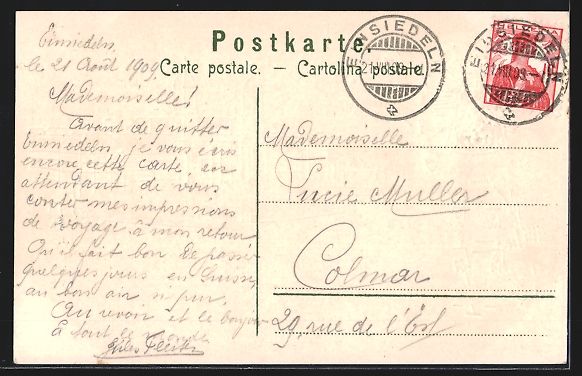 Postkarte.
Carte postale. — Cartolina postale.
EINSIEDELN
21.VIII.09
EINSIEDELN
21.VIII.09
Einsiedeln,
le 21 Août 1909
Mademoiselle!
Avant de quitter
Einsiedeln je vous écris
encore cette carte, en
attendant de vous
conter mes impressions
de voyage à mon retour
Qu'il fait bon de passer
quelques jours en Suisse,
au bon air si pur.
Au revoir et le bonjour
à tout le monde
Mademoiselle
Lucie Muller
Colmar
29, rue de l'Est